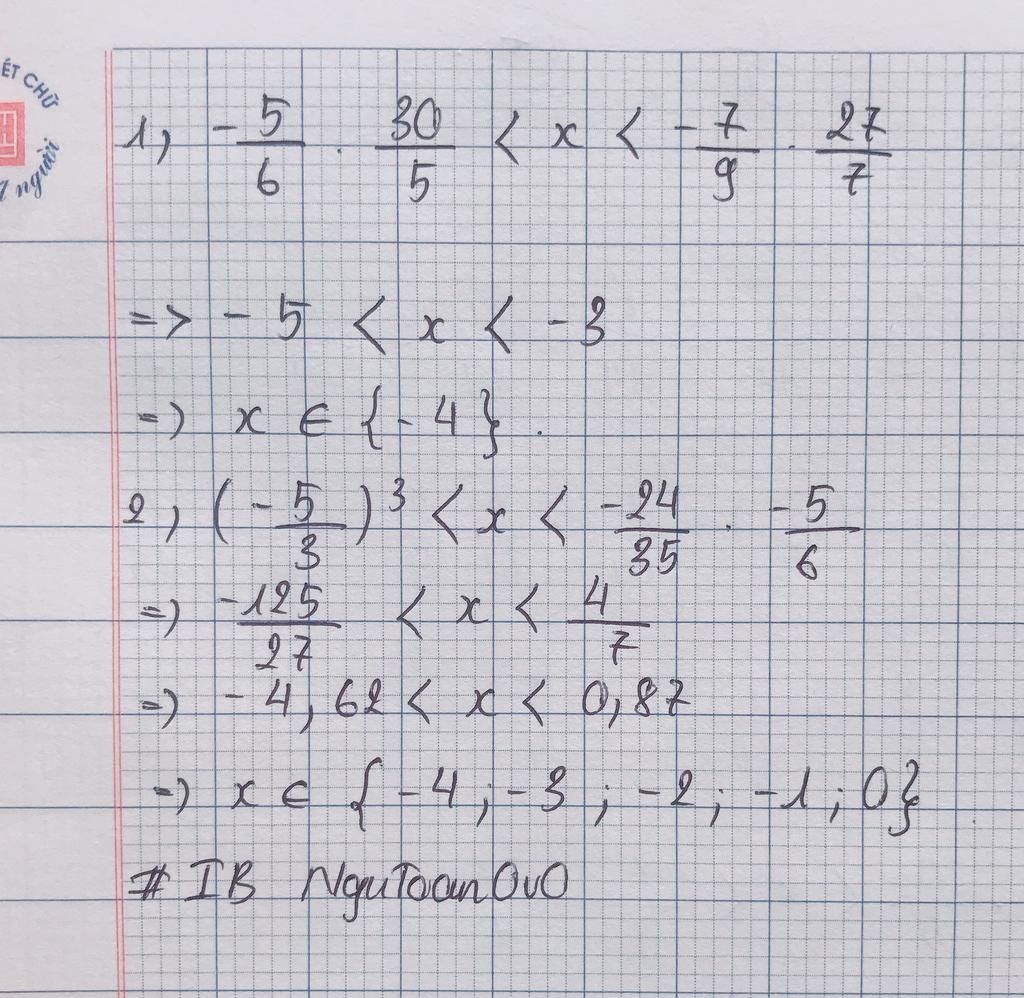 ẾT CHỮ
người
1, -5/6 . 30/5 < x < -7/9 . 27/7
=> -5 < x < -3
=) x ∈ {-4}.
2, (-5/3)³ < x < -24/35 . -5/6
=) -125/27 < x < 4/7
=) -4,62 < x < 0,87
=) x ∈ {-4 ; -3 ; -2 ; -1 ; 0}
# IB NguToanOvO